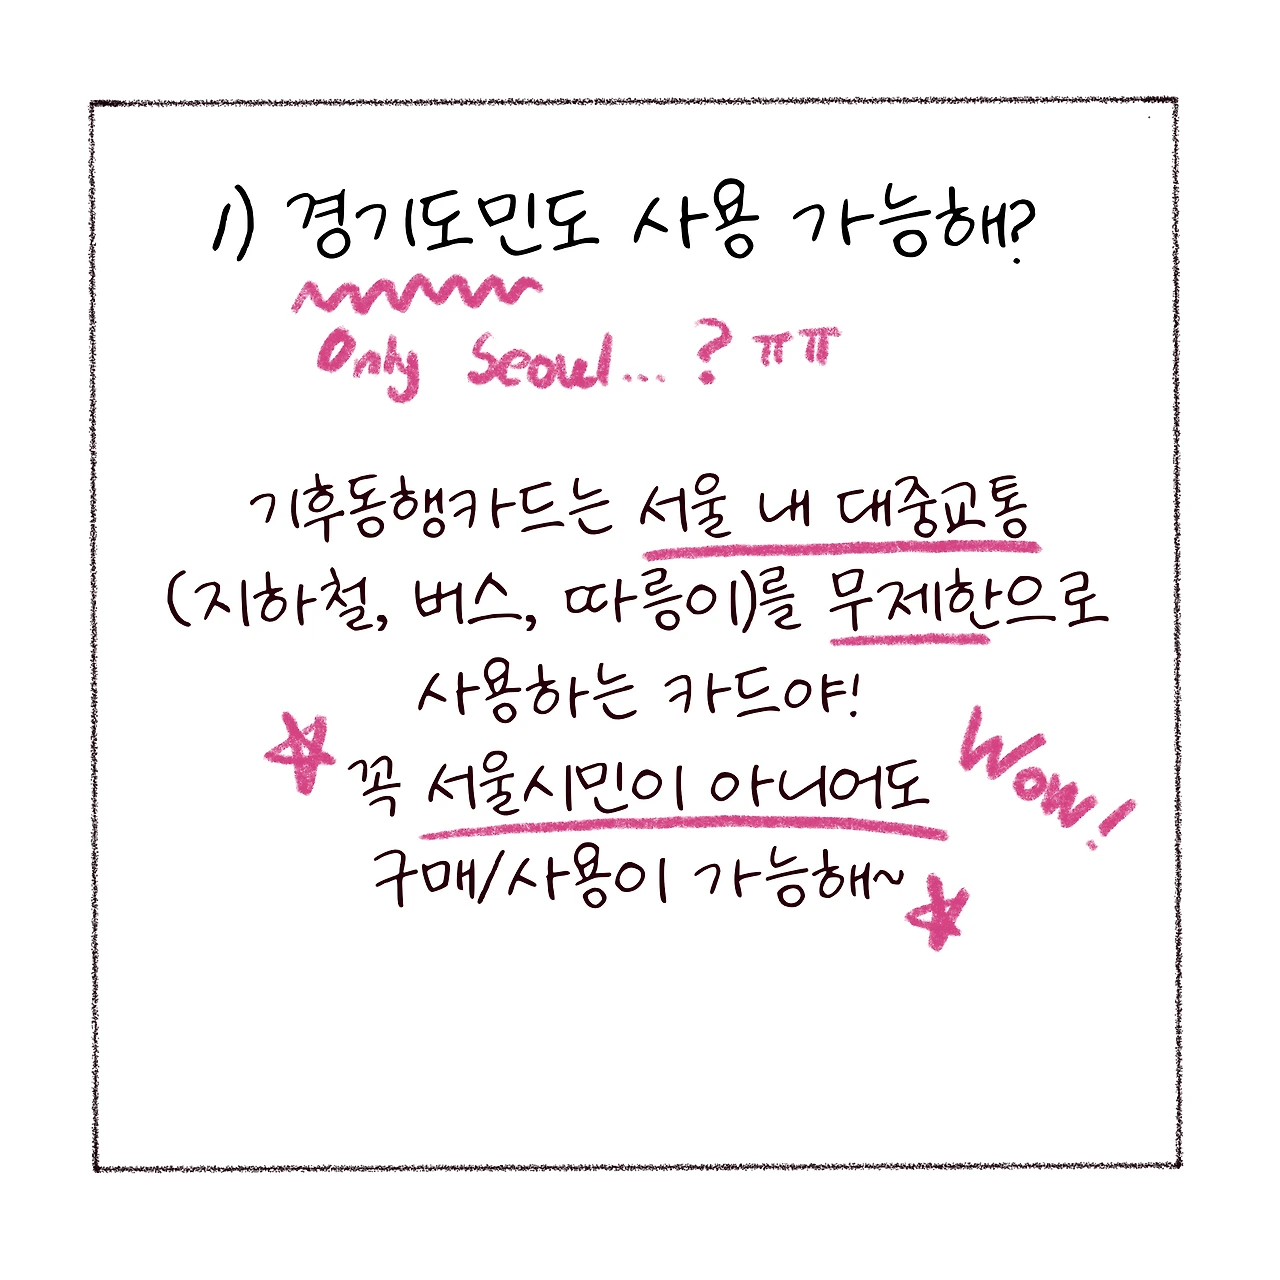 1) 경기도민도 사용 가능해?
Only Seoul...? ㅠㅠ
기후동행카드는 서울 내 대중교통
(지하철, 버스, 따릉이)를 무제한으로
사용하는 카드야!
꼭 서울시민이 아니어도
Wow!
구매/사용이 가능해~